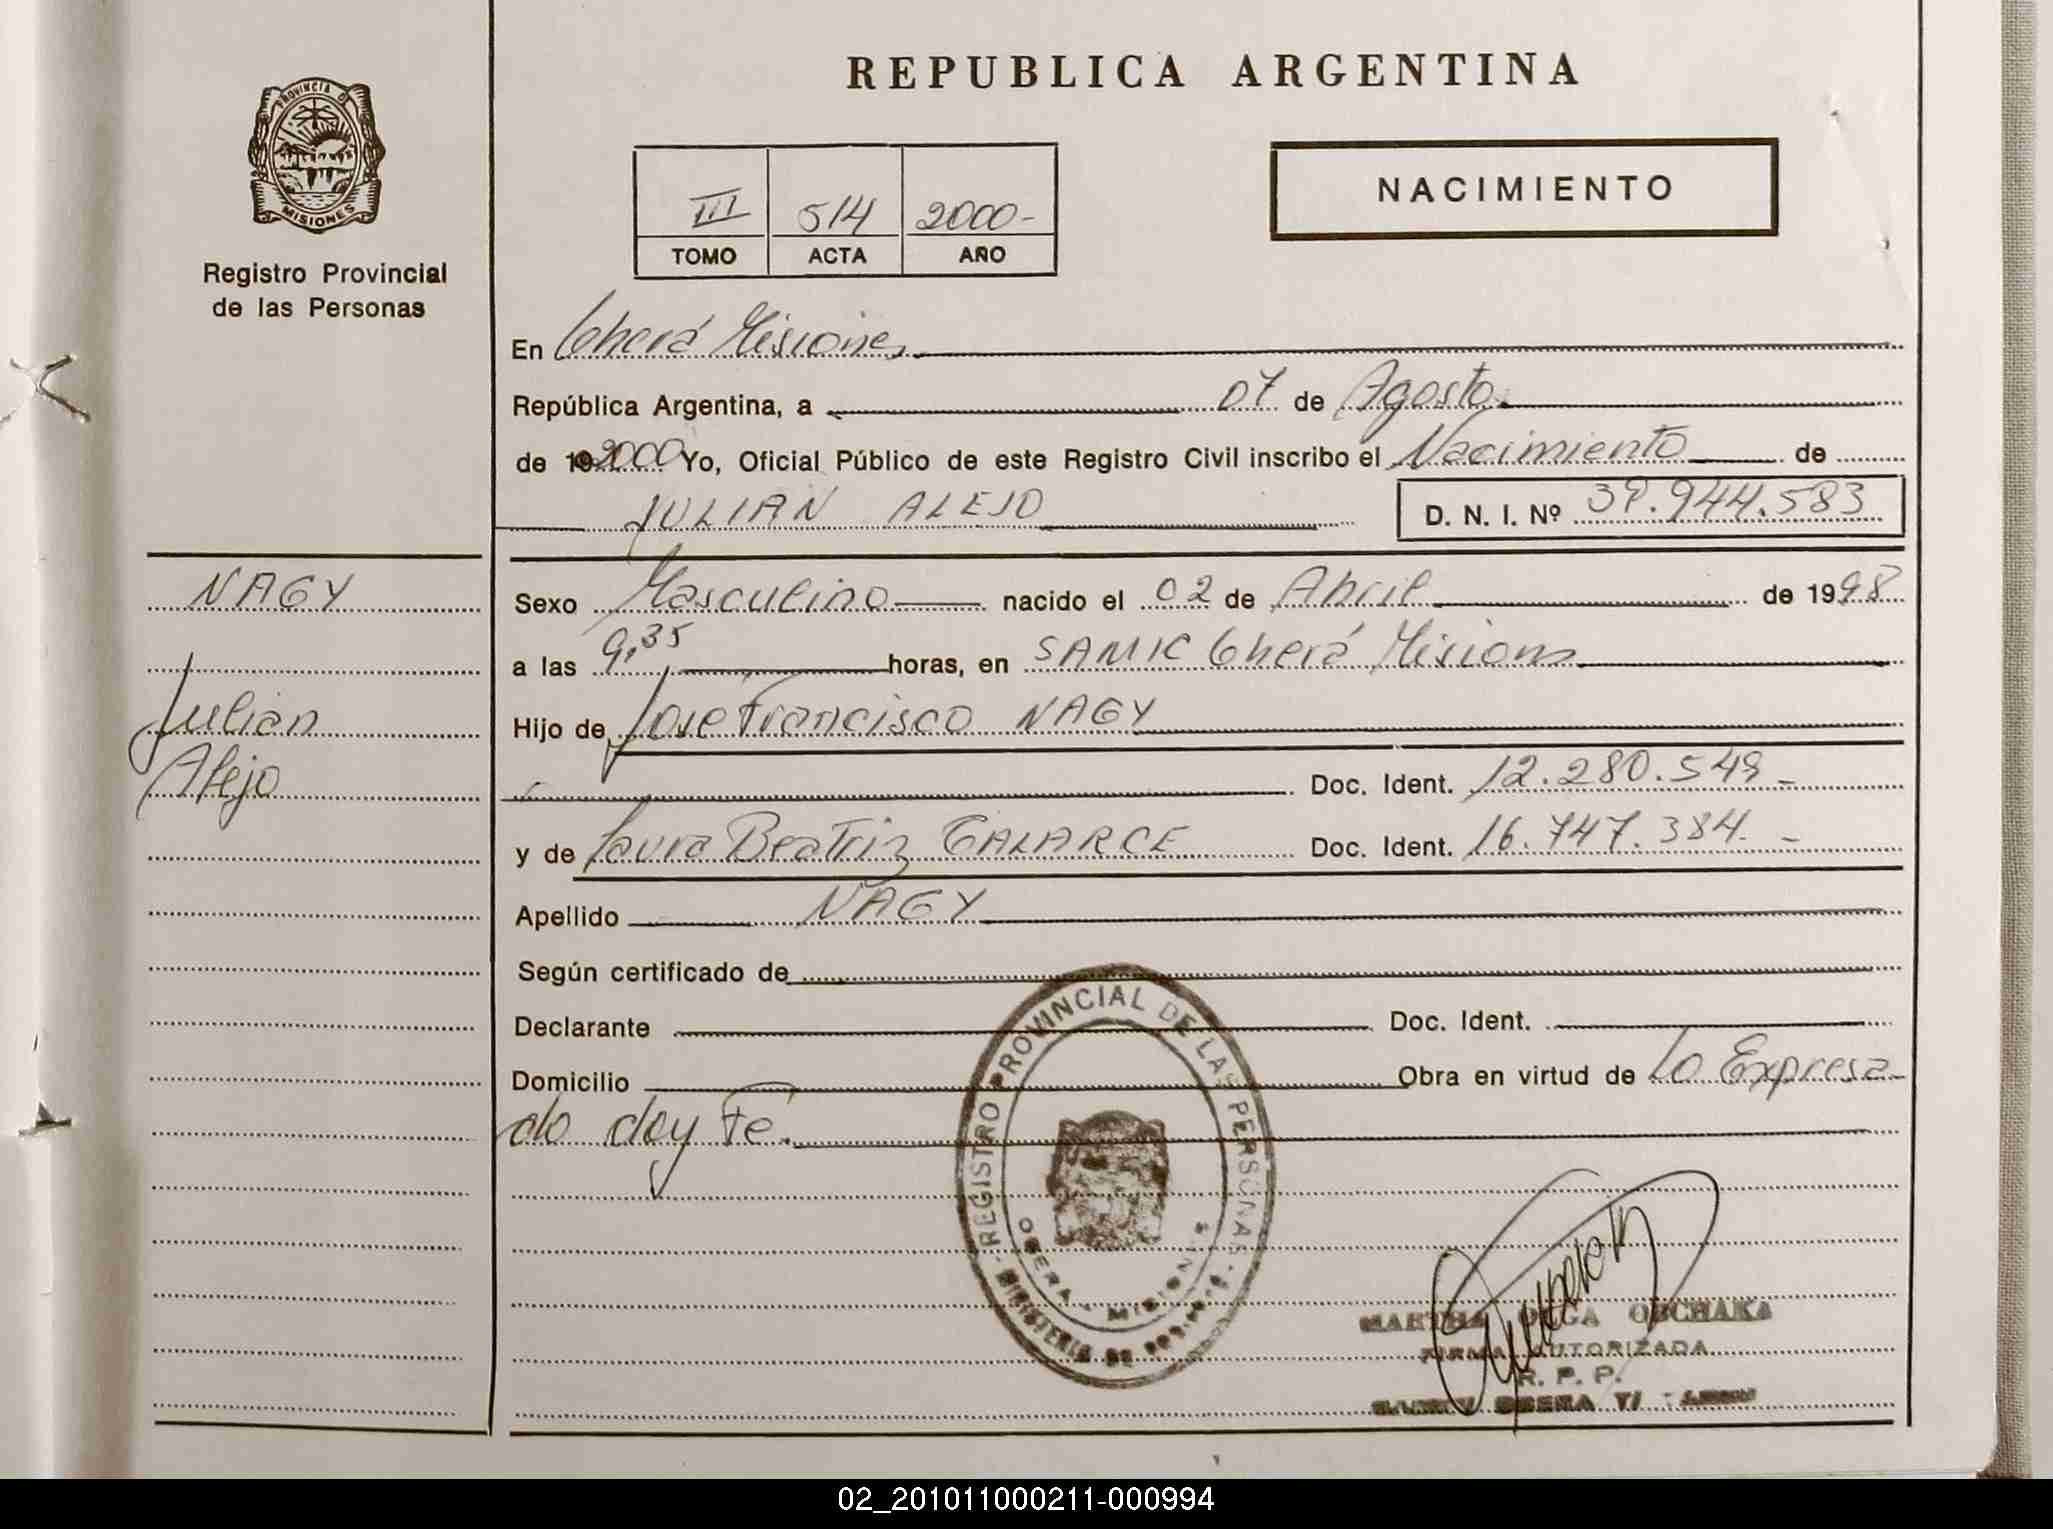 PROVINCIA D
MISIONES
Registro Provincial
de las Personas
REPUBLICA ARGENTINA
III 514 2000-
TOMO ACTA AÑO
NACIMIENTO
En Oberá Misiones
República Argentina, a 07 de Agosto
de 192000 Yo, Oficial Público de este Registro Civil inscribo el Nacimiento de
JULIAN ALEJO D. N. I. Nº 39.944.583
NAGY
Julian
Alejo
Sexo Masculino nacido el 02 de Abril de 1998
a las 9,35 horas, en SAMIC Oberá Misiones
Hijo de José Francisco NAGY
Doc. Ident. 12.280.549-
y de Laura Beatriz GALARCE Doc. Ident. 16.747.384.-
Apellido NAGY
Según certificado de
Declarante Doc. Ident.
Domicilio Obra en virtud de lo Expresa
do doy Fé.
REGISTRO PROVINCIAL DE LAS PERSONAS
OBERA - MISIONES
MINISTERIO DE
MARTHA OLGA OBCHAKA
FIRMA AUTORIZADA
R. P. P.
OBERA
02_201011000211-000994